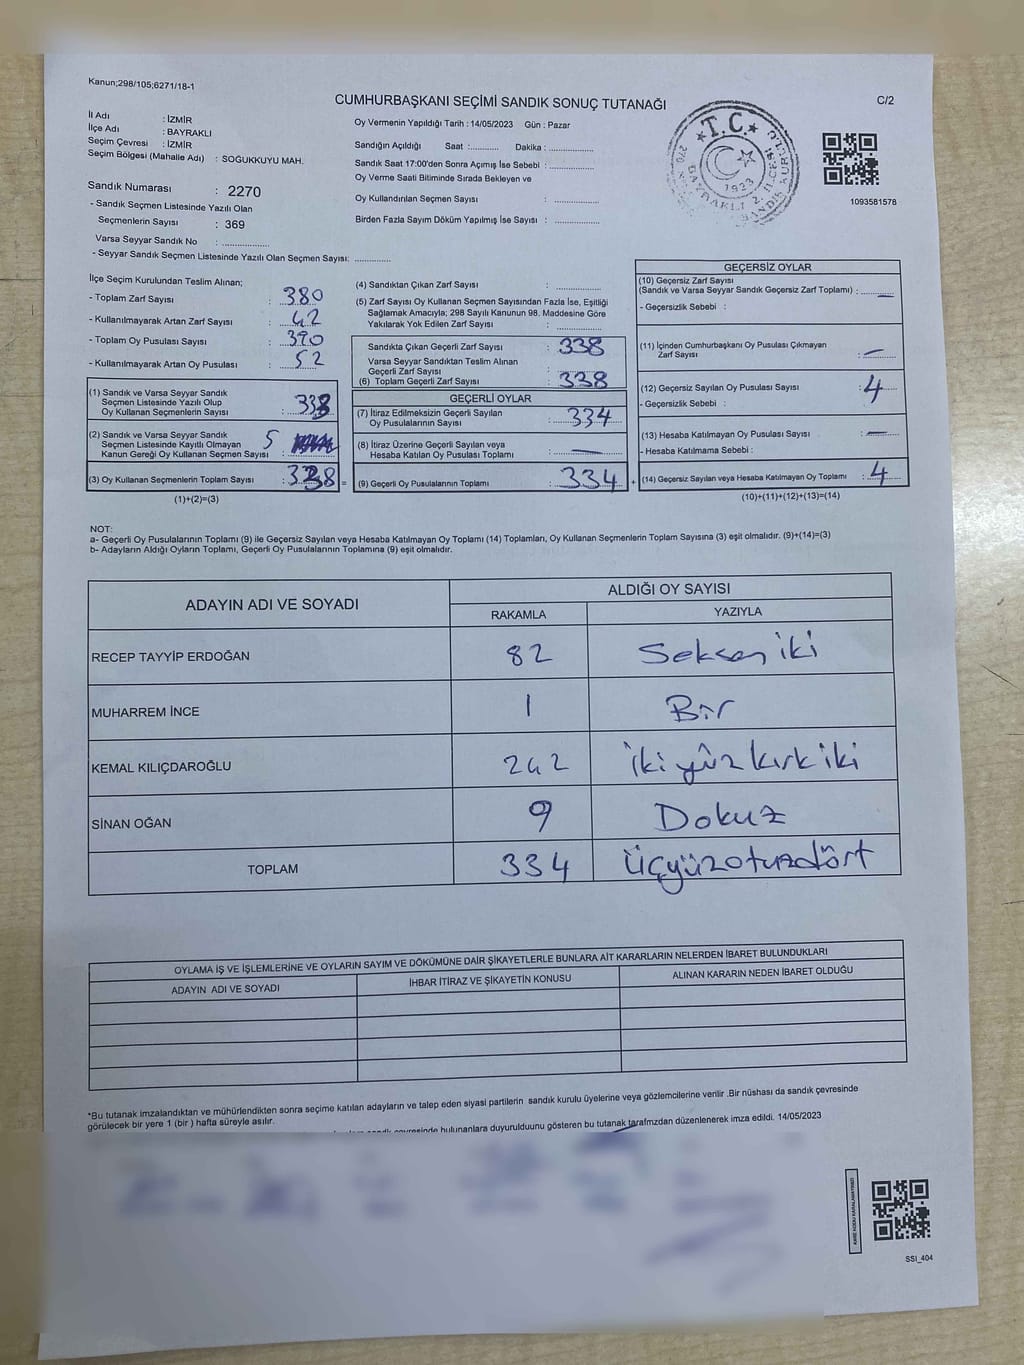 Kanun;298/105;6271/18-1
CUMHURBAŞKANI SEÇİMİ SANDIK SONUÇ TUTANAĞI
C/2
İl Adı : İZMİR
İlçe Adı : BAYRAKLI
Seçim Çevresi : İZMİR
Seçim Bölgesi (Mahalle Adı) : SOGUKKUYU MAH.
Sandık Numarası : 2270
- Sandık Seçmen Listesinde Yazılı Olan
Seçmenlerin Sayısı : 369
Varsa Seyyar Sandık No : ................
- Seyyar Sandık Seçmen Listesinde Yazılı Olan Seçmen Sayısı: ............
Oy Vermenin Yapıldığı Tarih : 14/05/2023 Gün : Pazar
Sandığın Açıldığı Saat :.......... Dakika :...............
Sandık Saat 17:00'den Sonra Açımış İse Sebebi :...............
Oy Verme Saati Bitiminde Sırada Bekleyen ve
Oy Kullandırılan Seçmen Sayısı : ...............
Birden Fazla Sayım Döküm Yapılmış İse Sayısı : ...............
T.C.
1923
1093581578
İlçe Seçim Kurulundan Teslim Alınan;
- Toplam Zarf Sayısı : 380
- Kullanılmayarak Artan Zarf Sayısı : 42
- Toplam Oy Pusulası Sayısı : 390
- Kullanılmayarak Artan Oy Pusulası : 52
(1) Sandık ve Varsa Seyyar Sandık
Seçmen Listesinde Yazılı Olup
Oy Kullanan Seçmenlerin Sayısı : 338
(2) Sandık ve Varsa Seyyar Sandık
Seçmen Listesinde Kayıtlı Olmayan
Kanun Gereği Oy Kullanan Seçmen Sayısı : 5
(3) Oy Kullanan Seçmenlerin Toplam Sayısı : 338 =
(1)+(2)=(3)
(4) Sandıktan Çıkan Zarf Sayısı : ...............
(5) Zarf Sayısı Oy Kullanan Seçmen Sayısından Fazla İse, Eşitliği
Sağlamak Amacıyla; 298 Sayılı Kanunun 98. Maddesine Göre
Yakılarak Yok Edilen Zarf Sayısı : ...............
Sandıkta Çıkan Geçerli Zarf Sayısı : 338
Varsa Seyyar Sandıktan Teslim Alınan
Geçerli Zarf Sayısı : ...............
(6) Toplam Geçerli Zarf Sayısı : 338
GEÇERLİ OYLAR
(7) İtiraz Edilmeksizin Geçerli Sayılan
Oy Pusulalarının Sayısı : 334
(8) İtiraz Üzerine Geçerli Sayılan veya
Hesaba Katılan Oy Pusulası Toplamı : —
(9) Geçerli Oy Pusulalarının Toplamı : 334 +
GEÇERSİZ OYLAR
(10) Geçersiz Zarf Sayısı
(Sandık ve Varsa Seyyar Sandık Geçersiz Zarf Toplamı) : —
- Geçersizlik Sebebi :
(11) İçinden Cumhurbaşkanı Oy Pusulası Çıkmayan
Zarf Sayısı : —
(12) Geçersiz Sayılan Oy Pusulası Sayısı : 4
- Geçersizlik Sebebi :
(13) Hesaba Katılmayan Oy Pusulası Sayısı : —
- Hesaba Katılmama Sebebi :
(14) Geçersiz Sayılan veya Hesaba Katılmayan Oy Toplamı : 4
(10)+(11)+(12)+(13)=(14)
NOT:
a- Geçerli Oy Pusulalarının Toplamı (9) ile Geçersiz Sayılan veya Hesaba Katılmayan Oy Toplamı (14) Toplamları, Oy Kullanan Seçmenlerin Toplam Sayısına (3) eşit olmalıdır. (9)+(14)=(3)
b- Adayların Aldığı Oyların Toplamı, Geçerli Oy Pusulalarının Toplamına (9) eşit olmalıdır.
ADAYIN ADI VE SOYADI ALDIĞI OY SAYISI
RAKAMLA YAZIYLA
RECEP TAYYİP ERDOĞAN 82 Seksen iki
MUHARREM İNCE 1 Bir
KEMAL KILIÇDAROĞLU 242 İki yüz kırk iki
SİNAN OĞAN 9 Dokuz
TOPLAM 334 Üçyüzotuzdört
OYLAMA İŞ VE İŞLEMLERİNE VE OYLARIN SAYIM VE DÖKÜMÜNE DAİR ŞİKAYETLERLE BUNLARA AİT KARARLARIN NELERDEN İBARET BULUNDUKLARI
ADAYIN ADI VE SOYADI İHBAR İTİRAZ VE ŞİKAYETİN KONUSU ALINAN KARARIN NEDEN İBARET OLDUĞU
*Bu tutanak imzalandıktan ve mühürlendikten sonra seçime katılan adayların ve talep eden siyasi partilerin sandık kurulu üyelerine veya gözlemcilerine verilir .Bir nüshası da sandık çevresinde
görülecek bir yere 1 (bir ) hafta süreyle asılır.
bulunanlara duyurulduunu gösteren bu tutanak tarafmzdan düzenlenerek imza edildi. 14/05/2023
SSI_404